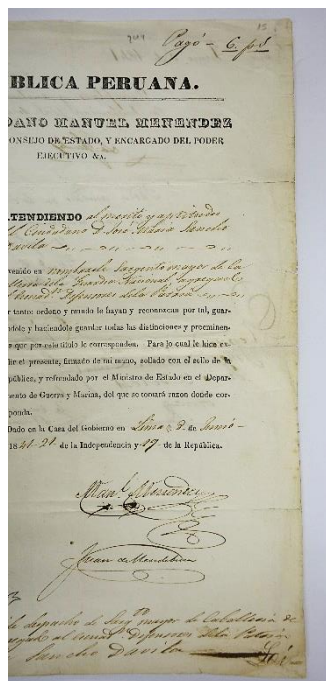 Pagó - 6. ps
BLICA PERUANA.
DANO MANUEL MENENDEZ
ONSEJO DE ESTADO, Y ENCARGADO DEL PODER
EJECUTIVO &A.
ATENDIENDO al merito y aptitudes
del Ciudadano D. José Maria Sancho
Davila
venido en nombrarle Sargento mayor de la
Guardia Nacional, agregado
Defensores de la
r tanto: ordeno y mando le hayan y reconozcan por tal, guar-
dándole y haciéndole guardar todas las distinciones y preeminen-
s que por este título le corresponden. Para lo cual le hice es-
dir el presente, firmado de mi mano, sellado con el sello de la
epública, y refrendado por el Ministro de Estado en el Depar-
mento de Guerra y Marina, del que se tomará razon donde cor-
ponda.
Dado en la Casa del Gobierno en Lima á 8. de Junio
1841-21. de la Independencia y 19 de la República.
Manl. Menendez
Juan de Mendiburu
despacho de Sargto mayor de Caballeria
Defensores de la Patria
Sancho Davila